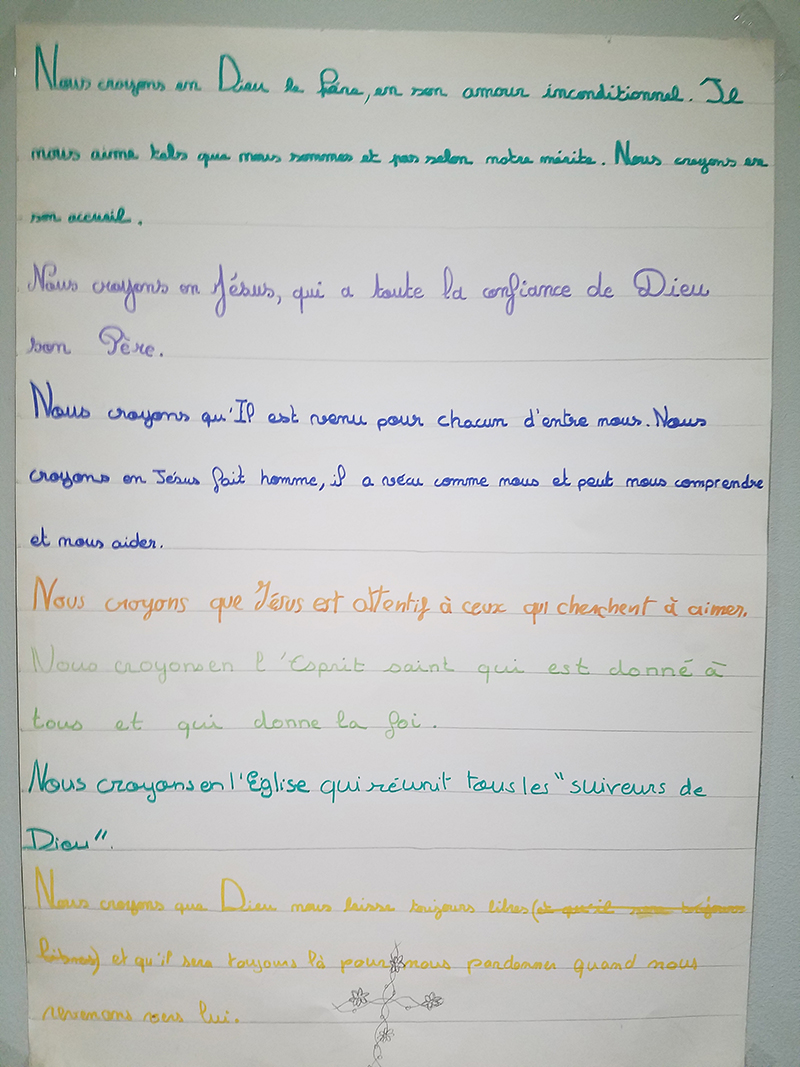 Nous croyons en Dieu le Père, en son amour inconditionnel. Il
nous aime tels que nous sommes et pas selon notre mérite. Nous croyons en
son accueil.
Nous croyons en Jésus, qui a toute la confiance de Dieu
son Père.
Nous croyons qu'Il est venu pour chacun d'entre nous. Nous
croyons en Jésus fait homme, il a vécu comme nous et peut nous comprendre
et nous aider.
Nous croyons que Jésus est attentif à ceux qui cherchent à aimer.
Nous croyons en l'Esprit saint qui est donné à
tous et qui donne la foi.
Nous croyons en l'Eglise qui réunit tous les "suiveurs de
Dieu".
Nous croyons que Dieu nous laisse toujours libres (et qu'il sera toujours
libres) et qu'il sera toujours là pour nous pardonner quand nous
revenons vers lui.